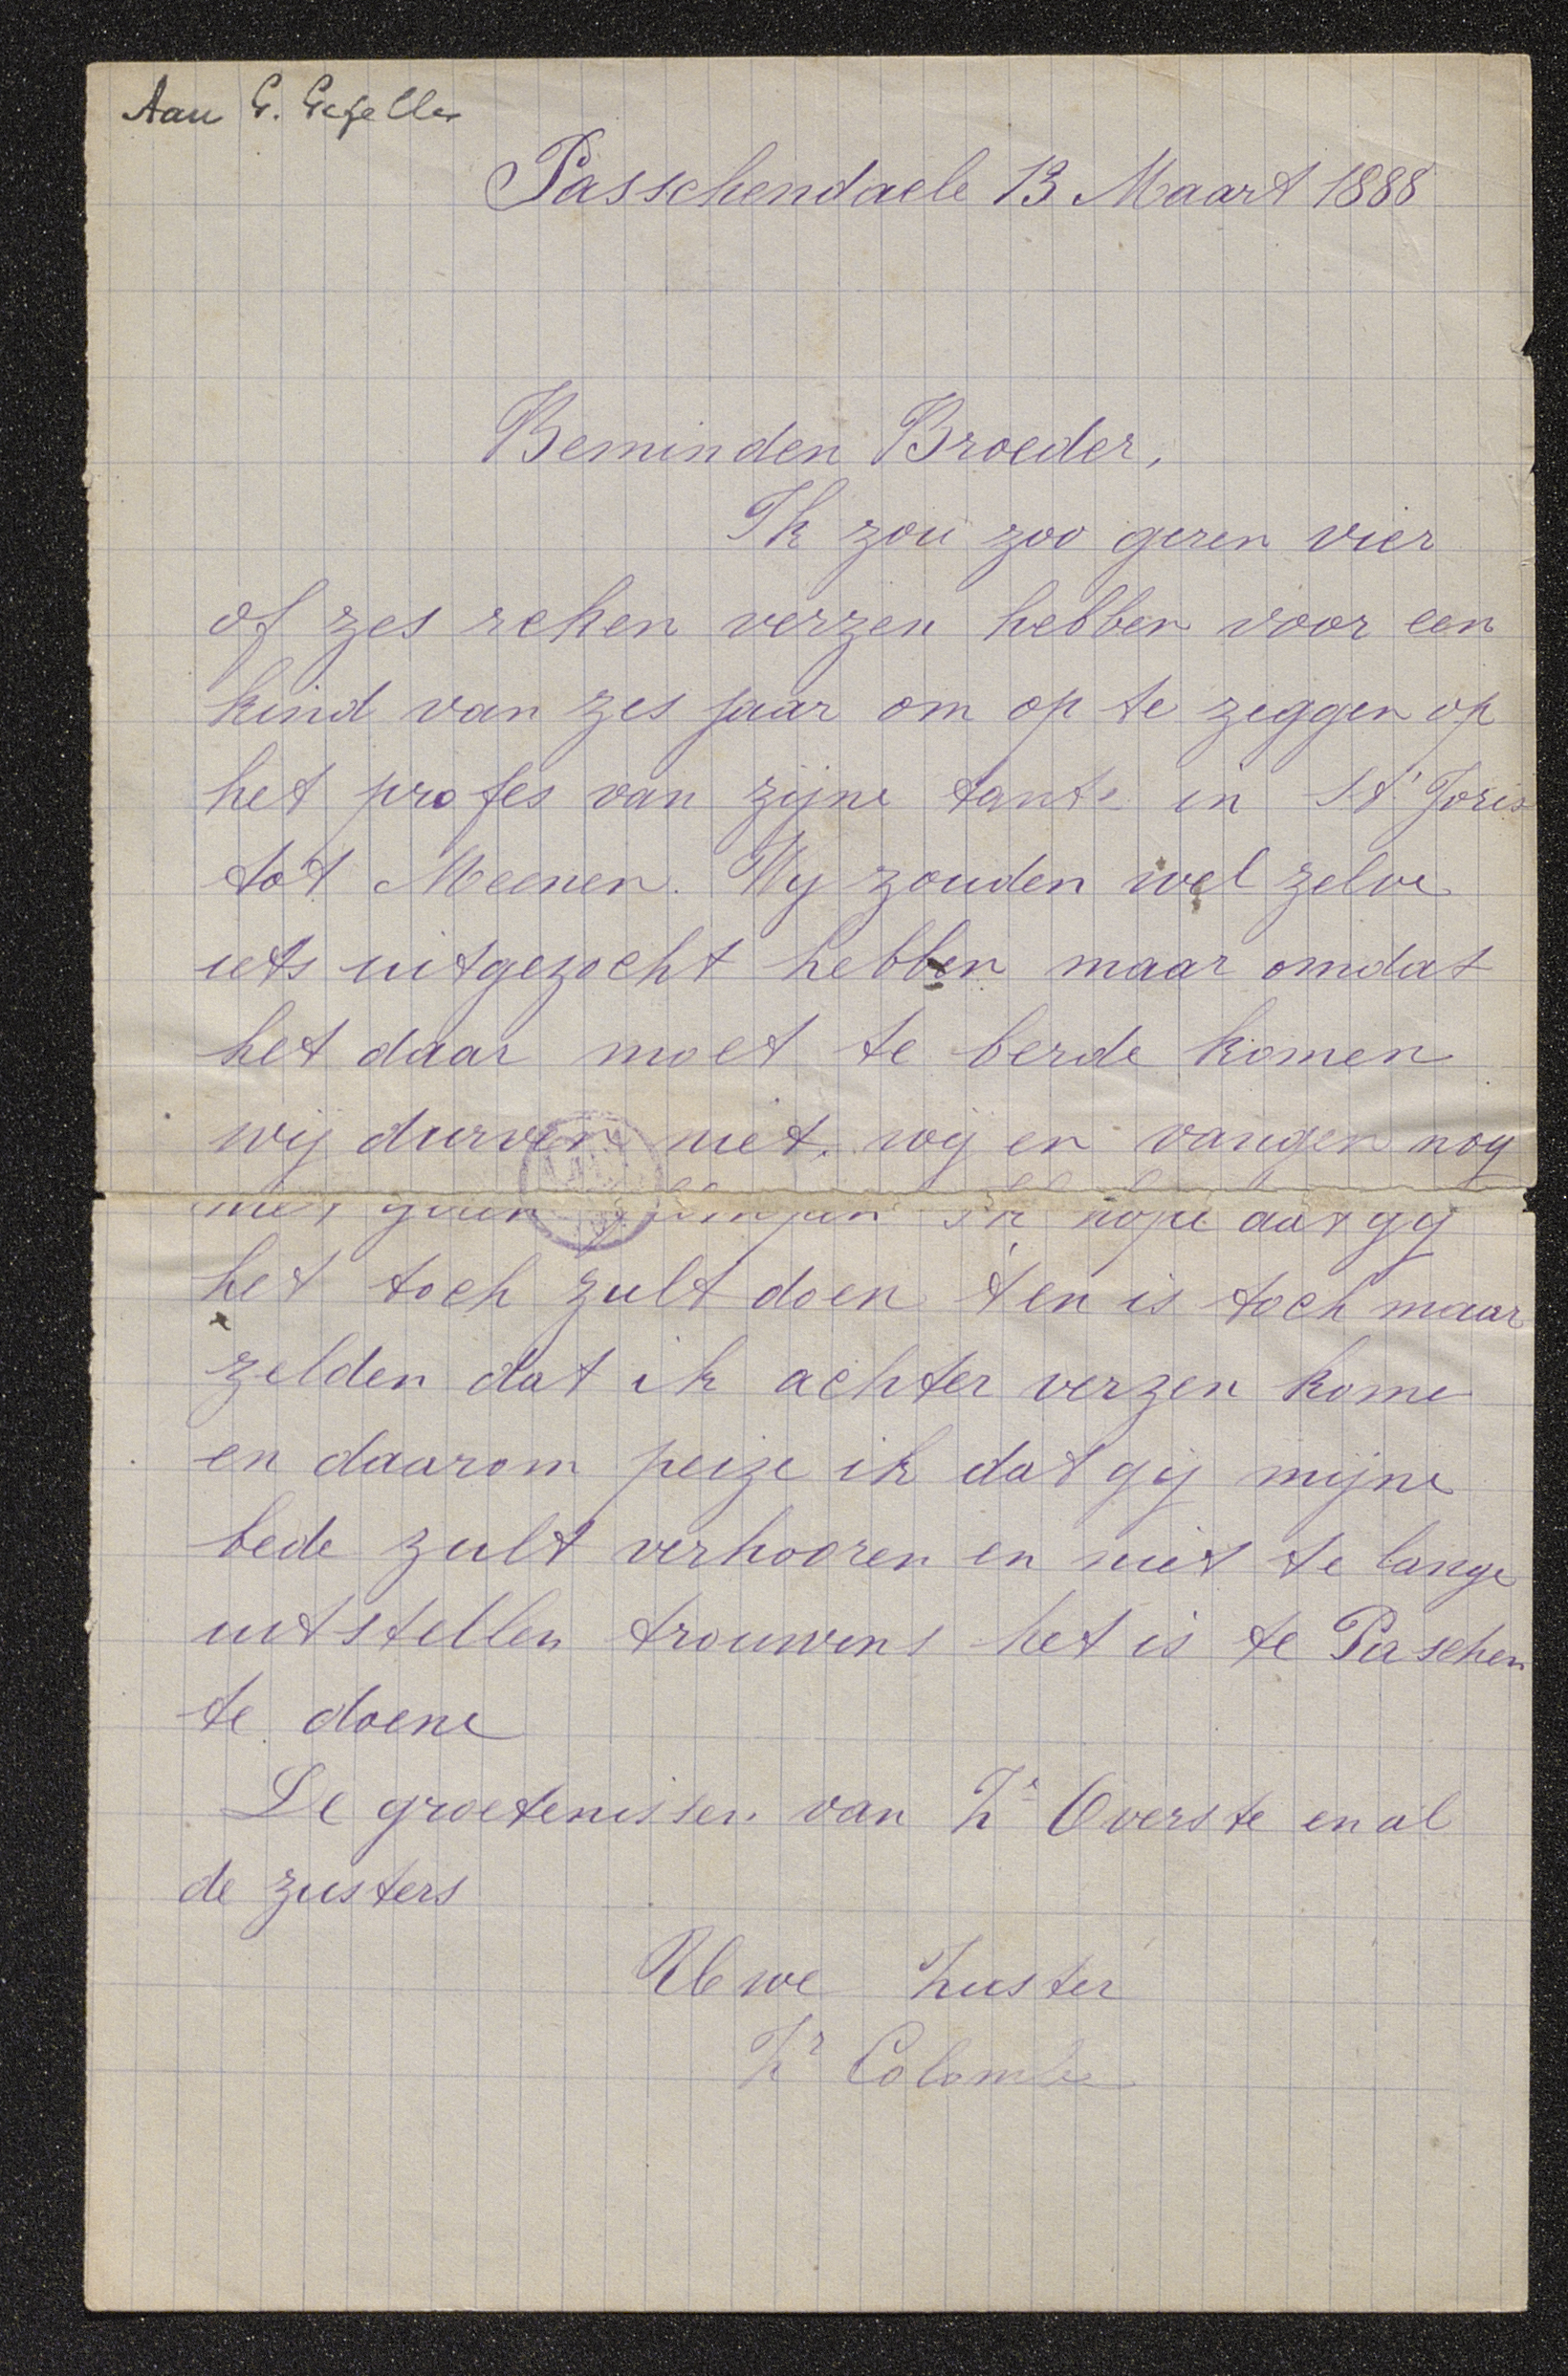 Aan G. Gezelle
Passchendaele 13 Maart 1888
Beminden Broeder,
Ik zou zoo geren vier
of zes reken verzen hebben voor een
kind van zes jaar om op te zeggen op
het profes van zijne tante in St. Joris
tot Meenen. Wy zouden wel zelve
iets uitgezocht hebben maar omdat
het daar moet te berde komen
wij durven niet, wij en vangen nog
geen ik hope dat gij
het toch zult doen t'en is toch maar
zelden dat ik achter verzen kome
en daarom peize ik dat gij mijne
bede zult verhooren en niet te lange
uitstellen trouwens het is te Paschen
te doene
De groetenissen van Zr Overste en al
de zusters
Uwe Zuster
Zr Colombe